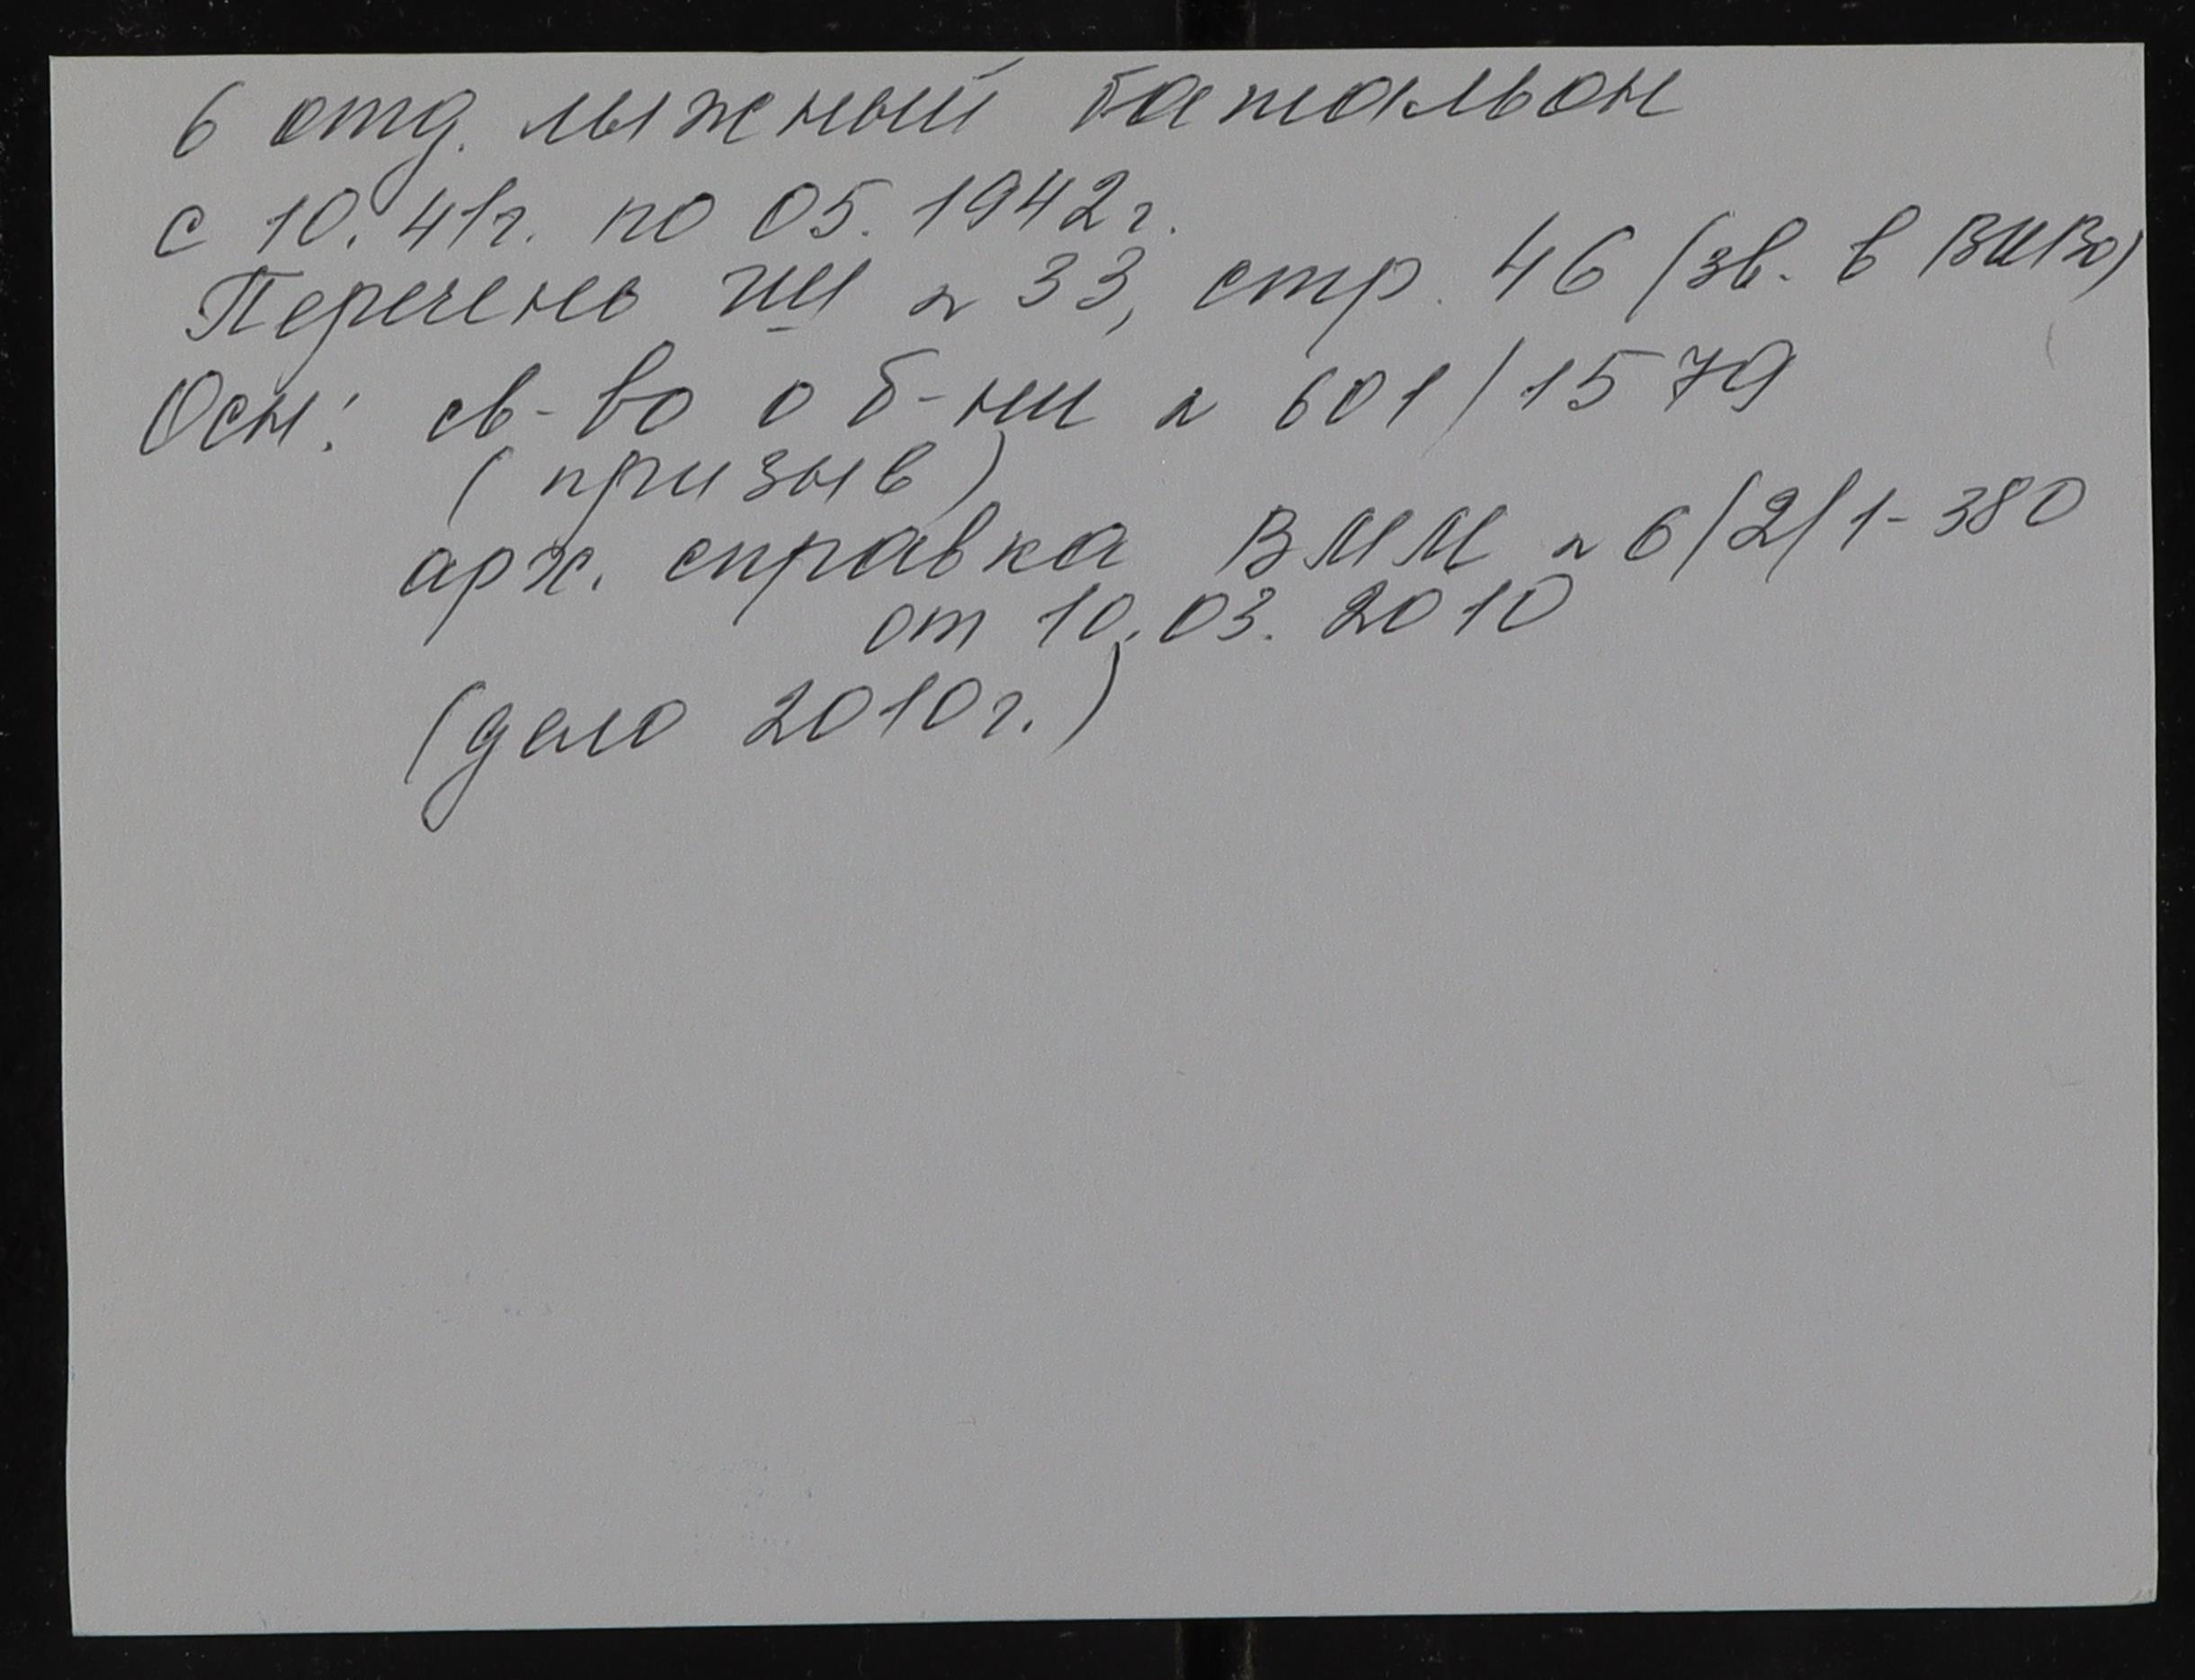 6 отд. лыжный батальон
с 10.41г. по 05.1942г.
Перечень ГШ № 33, стр. 46 (зв. в
Осн: св-во о б-ни № 601/1579
(призыв)
арх. справка ВММ № 6/2/1-380
от 10.03.2010
(дело 2010г.)